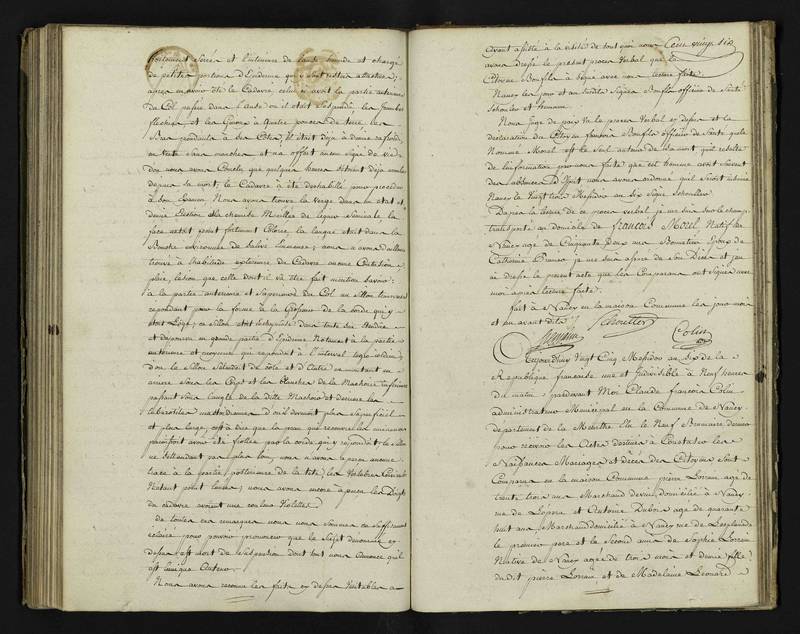 fortement Serrée et l'interieure de l'aute ronde et chargé
de petites portions d'Epiderme qui y etait restée attachée;
apres en avoir été le Cadavre, celui avait la partie anterieure
du Col passée dans l'anse ou il etait suspendu les jambes
flechies et les Genoux à quatre pouces de terre les
Bras pendants à ses Cotés, Il était déja à demie
sans mouvement et n'a offert aucun signe de vie
dou nous avons Conclu que quelques heures s'étaient déja ecoulées
depuis la mort, le Cadavre à eté deshabillé pour proceder
à son Examen. Nous avons trouvé la verge dans un etat de
demie Erection la chemise Mouillée de liqueur Séminale, la
face n'etait point fortement Colorée, la langue etait dans la
Bouche environnée de Salive Ecumeuse; nous n'avons d'ailleurs
trouvé à l'habitude exterieure du Cadavre aucune Contusion
plaie, lésion que celle dont il va être fait mention savoir:
à la partie anterieure et Superieure du Col un sillon transverse
repondant pour la forme à la Grosseur de la corde qui y
etait Logée; ce sillon etait dans toute son etendue
et depourvu en grande partie d'Epiderme Notament à la partie
anterieure et moyenne qui repondait à l'interval
dou le sillon s'etendait de coté et d'autre en montant en
arriere sous les Corps et les branches de la Machoire inferieure
passant sous l'angle de la Dite Machoire et derriere les
Mastoidiennes d'ou il devenait plus Superficiel
et plus large; c'est à dire que la peau qui recouvre
paraissait avoir eté frottée par la corde qui y repondait; le sillon
ne s'etendant pas plus loin, nous n'avons aperçu aucune
trace à la partie posterieure de la tete; les Vertebres Cervicales
N'etant point luxées; nous avons encore aperçu les Doigts
du cadavre avaient une couleur Violette.
De toutes ces remarques nous nous sommes cru Suffisament
eclairé pour pouvoir prononcer que le Sujet denommé cy
dessus est mort de Suspension dont tout nous annonce qu'il
est l'unique Auteur.
Nous avons reconnu les faits cy dessus Veritables
ayant assisté à la visite de tout quoi nous Cent vingt six
avons Dressé le present proces verbal que le
Citoyen Bonfils à Signé avec nous lecture faite.
Nancy les jour et an susdits Signés Bonfils officier de Santé
Schouller et hemann
Nous Juge de paix Vu le proces Verbal cy dessus et la
déclaration du Citoyen Bonfils officier de Santé que le
Nommé Morel est le Seul auteur de sa mort qu'il resulte
de l'information par nous faite que cet homme avait Souvent
des absences d'Esprit nous avons ordonné qu'il serait inhumé
Nancy le Vingt trois Messidor an Six Signé Schouller
D'apres la lecture de ce proces verbal je me suis sur le champ
transporté au domicile de françois Morel Natif de
Nancy agé de Cinquante ans Bonnetier Epoux de
Catherine je me suis assuré de son Décès et j'en
ai dressé le present acte que les Comparans ont Signés avec
moi apres lecture faite.
fait à Nancy en la maison Commune les jour mois
et an avant dits.
hemann Schouller Colin
Aujourd'huy Vingt Cinq Messidor an Six de la
Republique française une et Indivisible à Neuf heures
du matin, pardevant Moi Claude françois Colin
administrateur Municipal de la Commune de Nancy
departement de la Meurthe Elu le Neuf Brumaire dernier
pour recevoir les Actes destinés à Constater les
Naissances Mariages et décès des Citoyens sont
Comparus en la maison Commune pierre Lorrain agé de
trente trois ans Marchand domicilié à Nancy
rue de et Antoine Dubois agé de quarante
huit ans, Marchand domicilié à Nancy rue de l'esplanade
le premier pere et le Second ami de Sophie Lorrain
Native de Nancy agée de trois mois et demie fille
dudit pierre Lorrain et de Madelaine Leonard